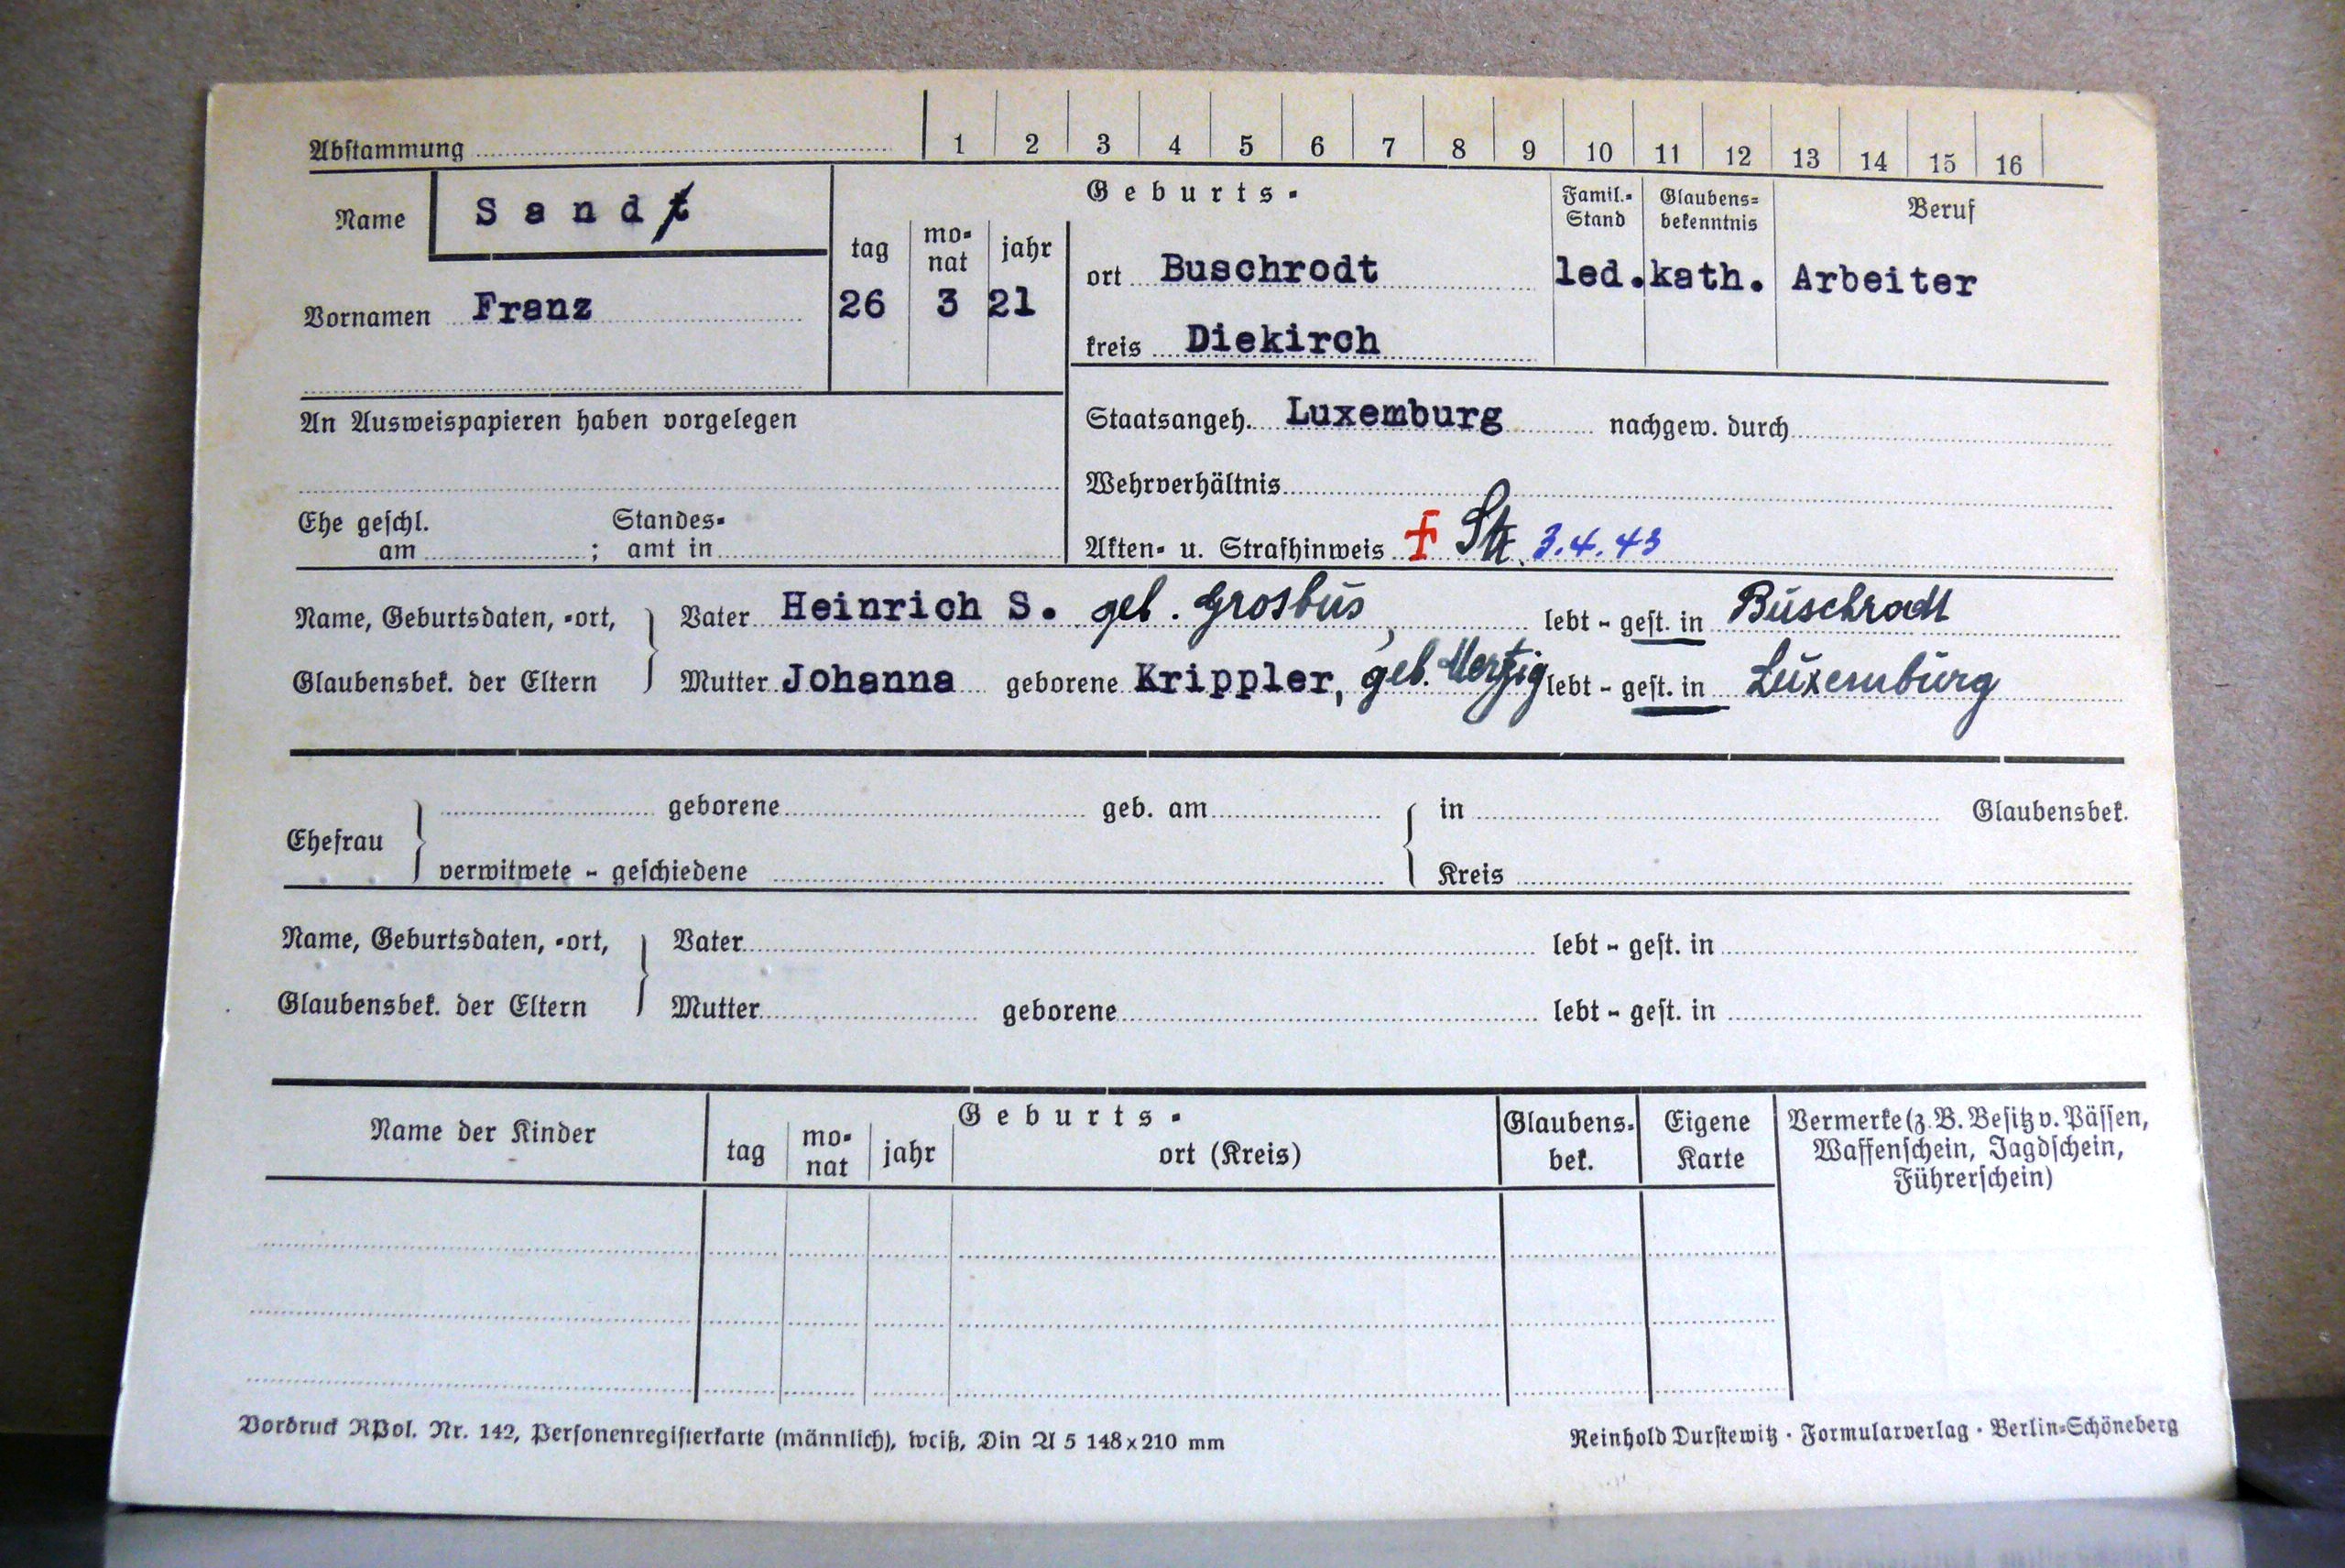 Abstammung 1 2 3 4 5 6 7 8 9 10 11 12 13 14 15 16
Name Sandt
Vornamen Franz
Geburts-
tag monat jahr
26 3 21
ort Buschrodt
kreis Diekirch
Famil.-Stand
led.
Glaubens=bekenntnis
kath.
Beruf
Arbeiter
An Ausweispapieren haben vorgelegen
Staatsangeh. Luxemburg nachgew. durch
Wehrverhältnis
Ehe geschl. am ; Standes-amt in
Akten- u. Strafhinweis 3.4.43
Name, Geburtsdaten, -ort, Vater Heinrich S. geb. Grosbus, lebt - gest. in Buschrodt
Glaubensbek. der Eltern Mutter Johanna geborene Krippler, geb. Mertzig lebt - gest. in Luxemburg
Ehefrau geborene geb. am in Glaubensbek.
verwitwete - geschiedene Kreis
Name, Geburtsdaten, -ort, Vater lebt - gest. in
Glaubensbek. der Eltern Mutter geborene lebt - gest. in
Name der Kinder
Geburts-
tag monat jahr ort (Kreis)
Glaubens-bek.
Eigene Karte
Vermerke (z. B. Besitz v. Pässen,
Waffenschein, Jagdschein,
Führerschein)
Vordruck RPol. Nr. 142, Personenregisterkarte (männlich), weiß, Din A 5 148x210 mm
Reinhold Durstewitz · Formularverlag · Berlin=Schöneberg